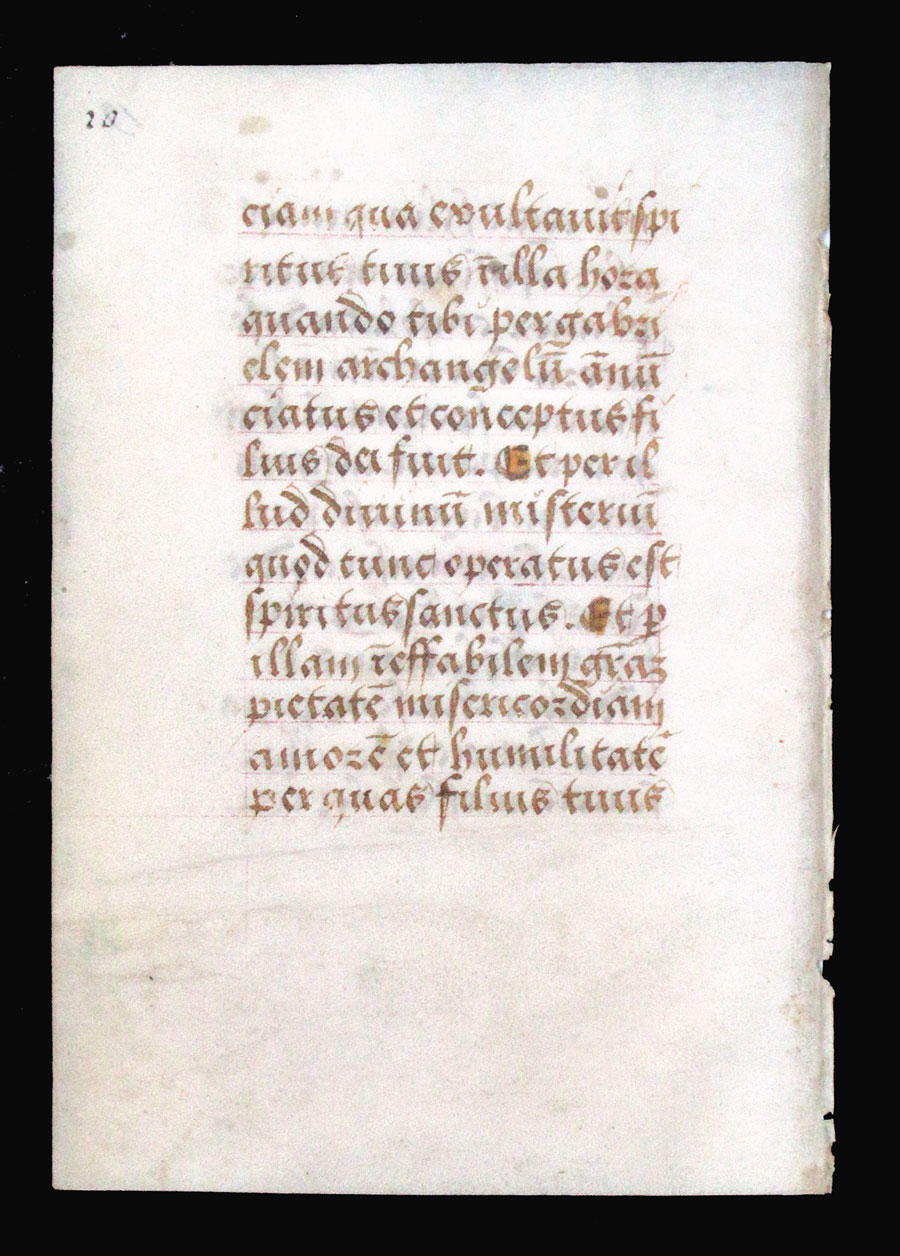 20
ciam qua exultauit spi
ritus tuus ī illa hora
quando tibi per gabri
elem archangelū ānū
ciatus et conceptus fi
lius dei fuit. Et per il
lud diuinū misteriū
quod tunc operatus est
spiritus sanctus. Et ꝑ
illam īeffabilem grāꝫ
pietatē misericordiam
amorē et humilitatē
per quas filius tuus